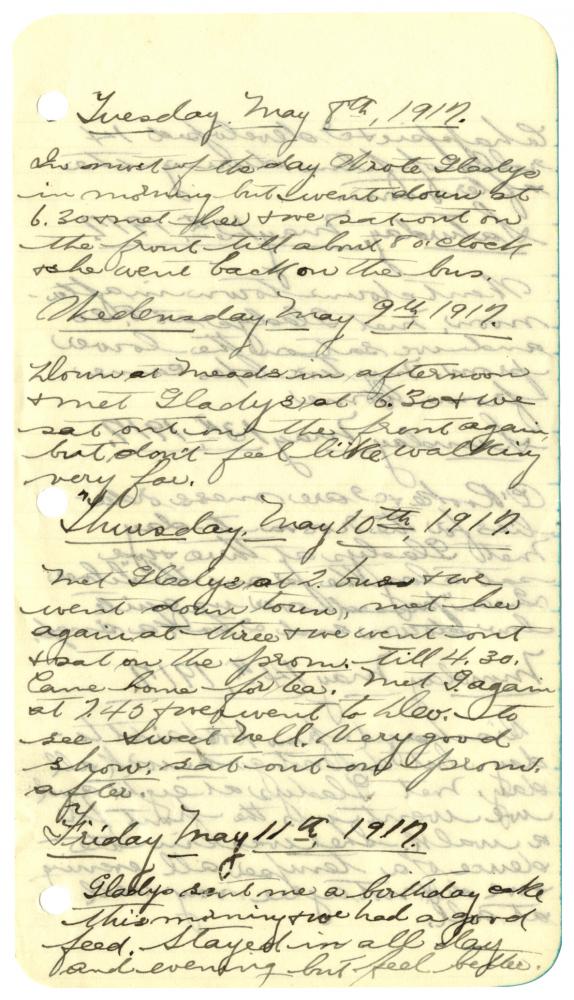 Tuesday. May 8th, 1917.
In most of the day Wrote Gladys
in morning but went down at
6.30 & met her & we sat out on
the front till about 8 o'clock
& she went back on the bus.
Wedensday, May 9th, 1917.
Down at Meads in afternoon
& met Gladys at 6.30 & we
sat out on the front again,
but don't feel like walking
very far.
Thursday, May 10th, 1917.
Met Gladys at 2. bus & we
went down town, met her
again at three & we went out
& sat on the prom. till 4.30.
Came home for tea. Met G. again
at 7.40 & we went to Dev. to
see Sweet Nell. Very good
show. sat out on prom.
after.
Friday May 11th, 1917.
Gladys sent me a birthday cake
this morning & we had a good
feed. Stayed in all day
and evening but feel better.